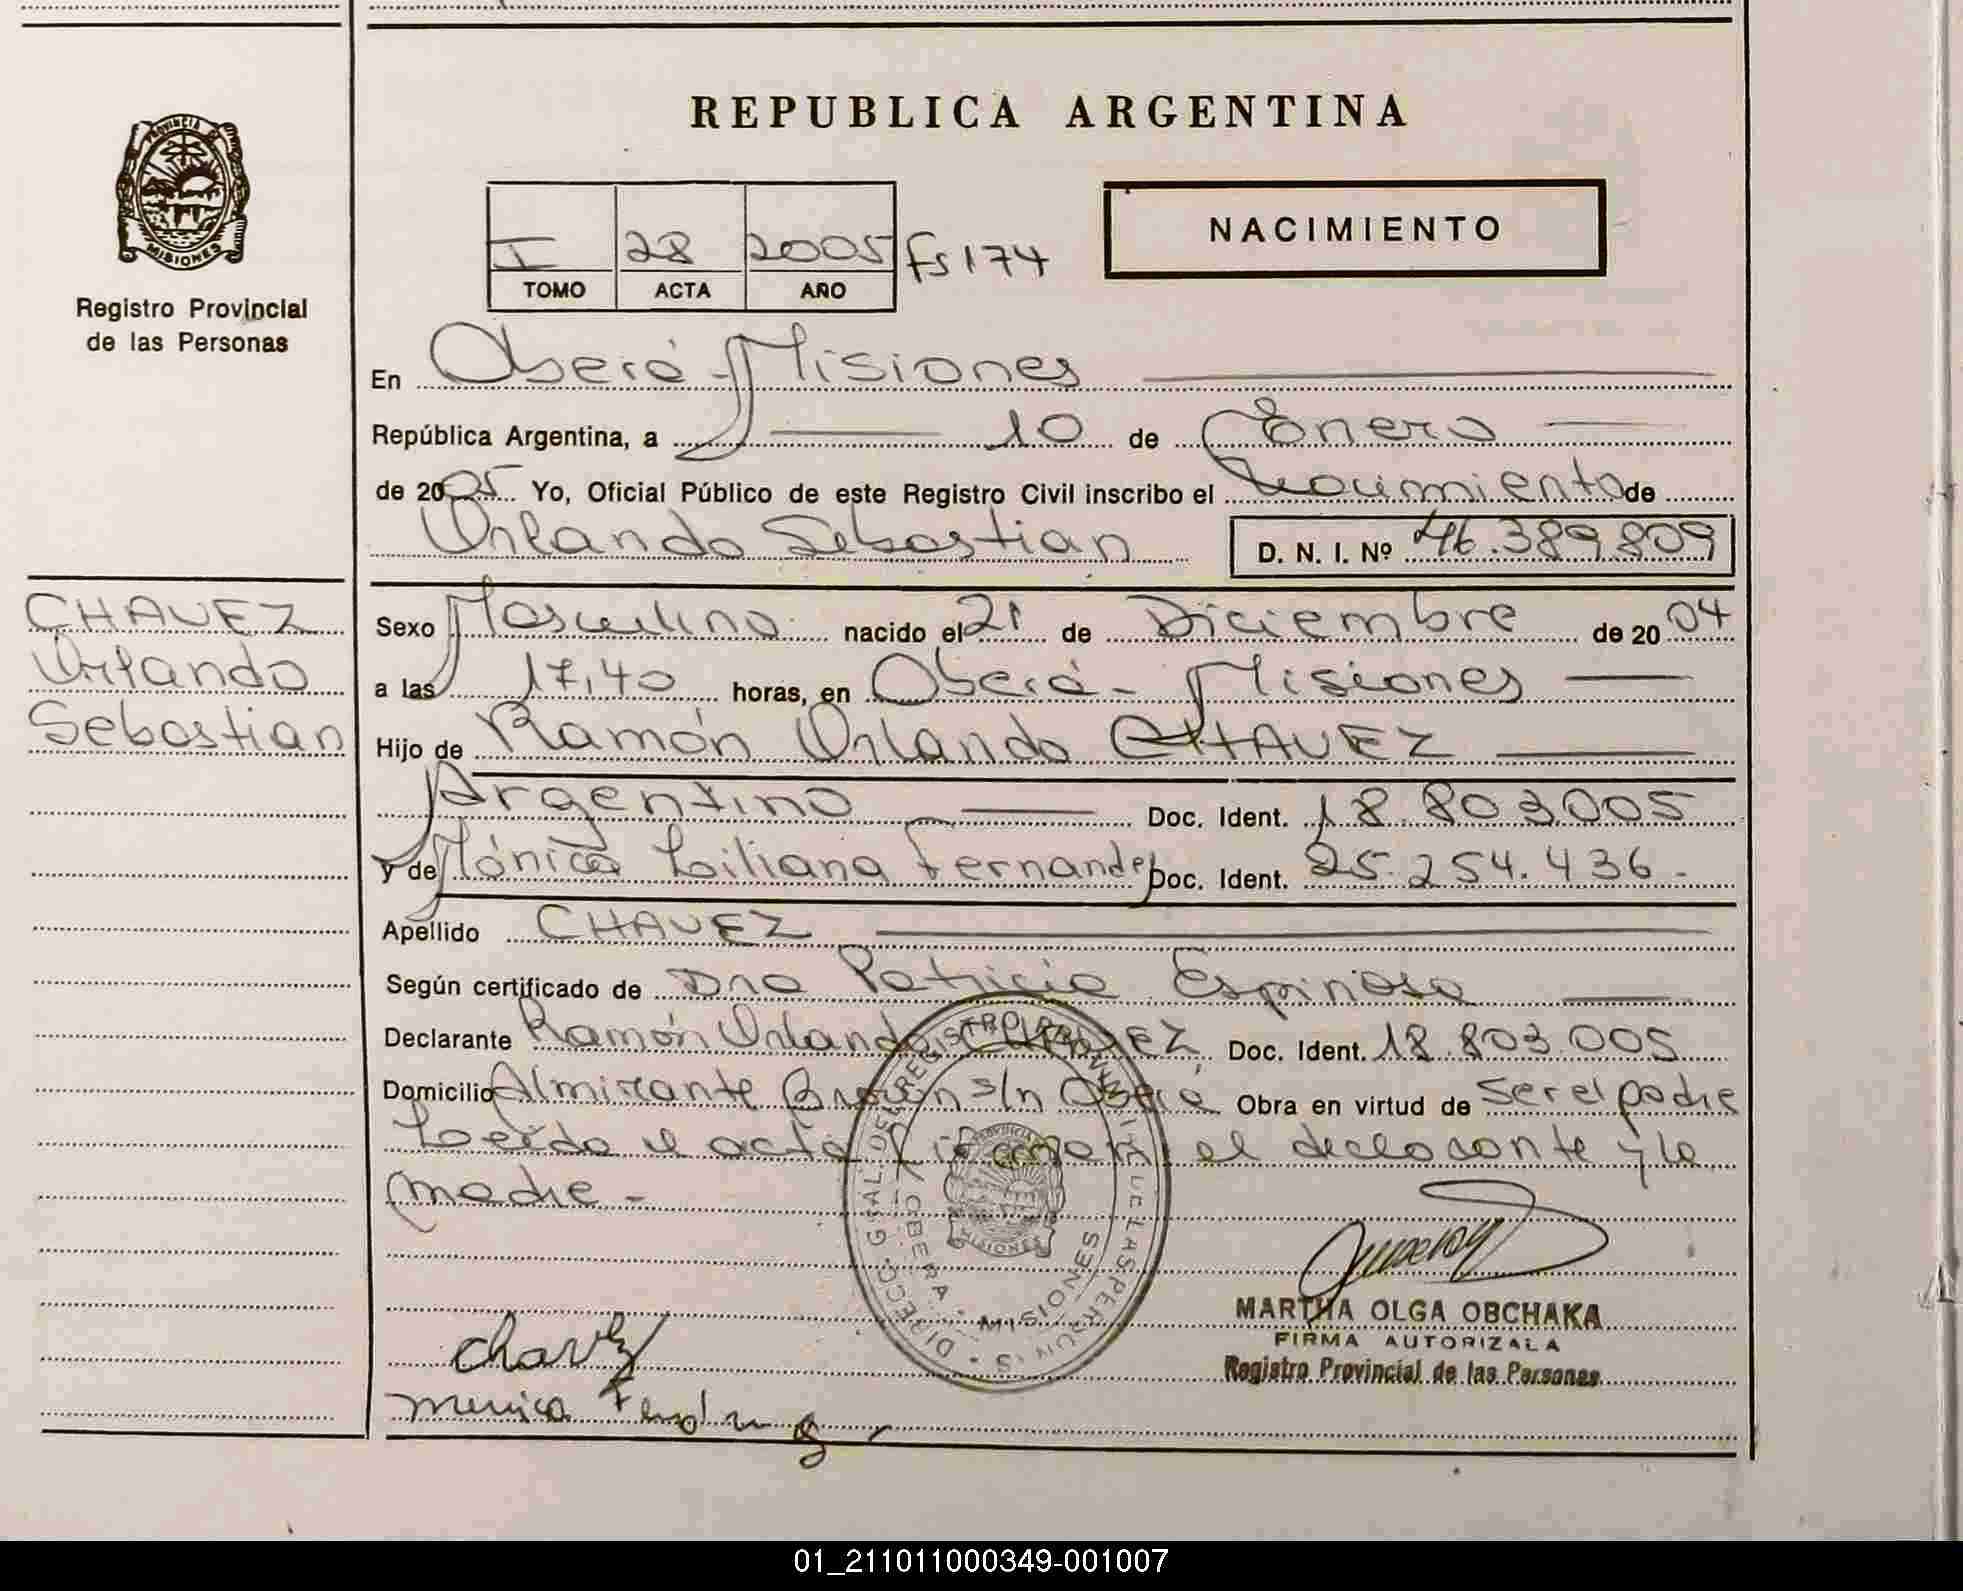 REPUBLICA ARGENTINA
PROVINCIA DE
MISIONES
Registro Provincial
de las Personas
NACIMIENTO
I 28 2005 fs 174
TOMO ACTA AÑO
En Oberá - Misiones
República Argentina, a 10 de Enero
de 2005 Yo, Oficial Público de este Registro Civil inscribo el Nacimiento de
Orlando Sebastian D. N. I. Nº 46.389.809
CHAVEZ
Orlando
Sebastian
Sexo Masculino nacido el 21 de Diciembre de 2004
a las 17,40 horas, en Oberá - Misiones
Hijo de Ramón Orlando CHAVEZ
Argentino Doc. Ident. 18.803.005
y de Mónica Liliana Fernandez Doc. Ident. 25.254.436.-
Apellido CHAVEZ
Según certificado de Dra Patricia Espinosa
Declarante Ramón Orlando CHAVEZ Doc. Ident. 18.803.005
Domicilio Almirante Brown s/n Oberá Obra en virtud de ser el padre
Leída el acta firman el declarante y la
madre.-
DIREC. GRAL. DEL REGISTRO PROVINCIAL DE LAS PERSONAS
OBERA - MISIONES
PROVINCIA DE
MISIONES
MARTHA OLGA OBCHAKA
FIRMA AUTORIZADA
Registro Provincial de las Personas
Chavez
01_211011000349-001007